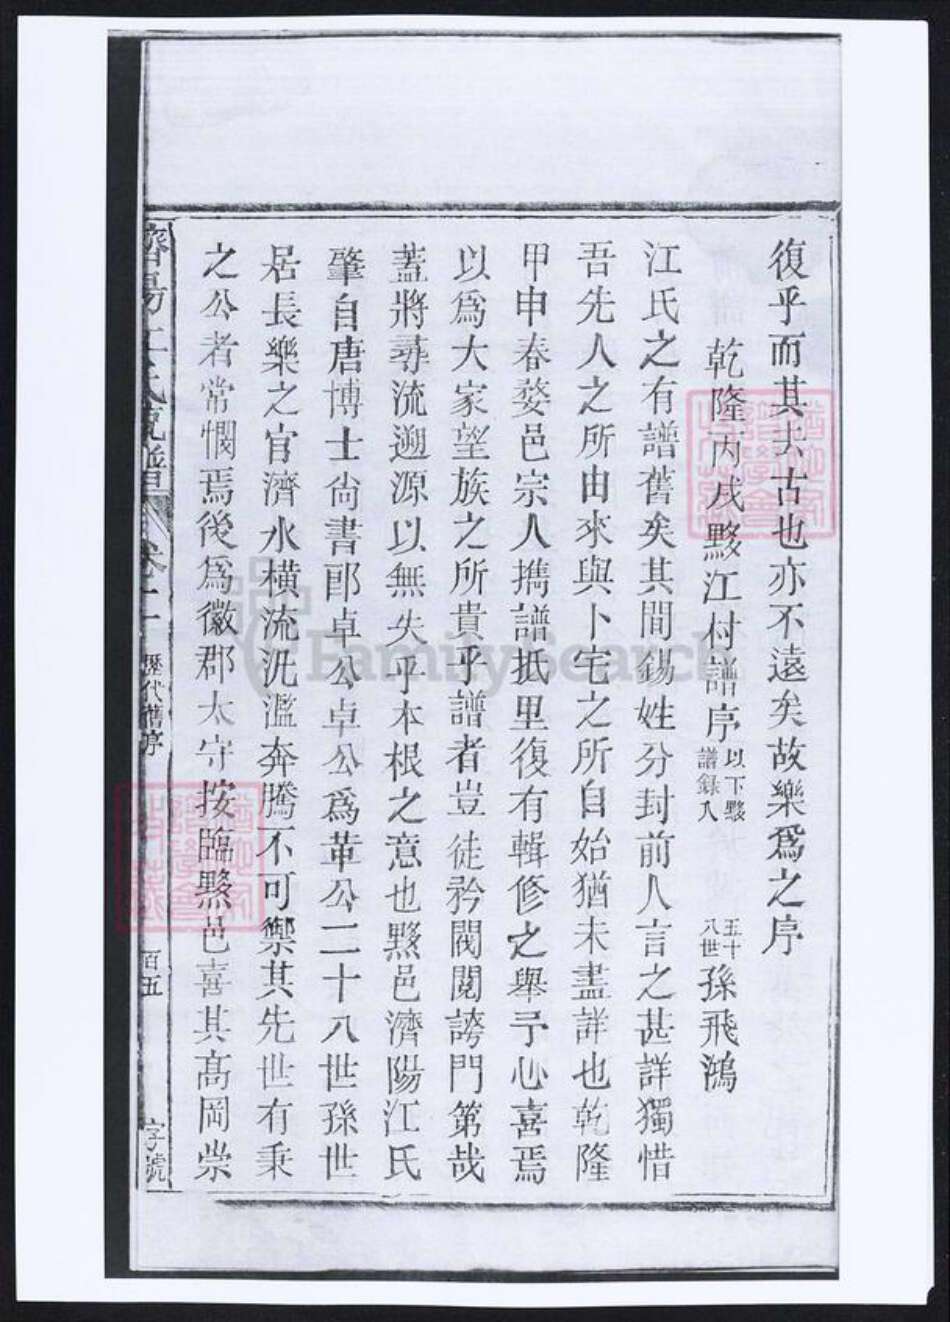 復乎而其去古也亦不遠矣故樂爲之序
乾隆丙戌黟江付譜序 以下黟譜錄入 五十八世孫飛鴻
江氏之有譜舊矣其間錫姓分封前人言之甚詳獨惜
吾先人之所由來與卜宅之所自始猶未盡詳也乾隆
甲申春婺邑宗人攜譜抵里復有輯修之舉予心喜焉
以爲大家望族之所貴乎譜者豈徒矜閥閱誇門第哉
蓋將尋流遡源以無失乎本根之意也黟邑濟陽江氏
肇自唐博士尙書郎卓公卓公爲革公二十八世孫世
居長樂之官濟水橫流氾濫奔騰不可禦其先世有秉
之公者常憫焉後爲徽郡太守按臨黟邑喜其高岡崇
濟陽江氏統譜 卷十一 歷代舊序 百五 字號
FamilySearch